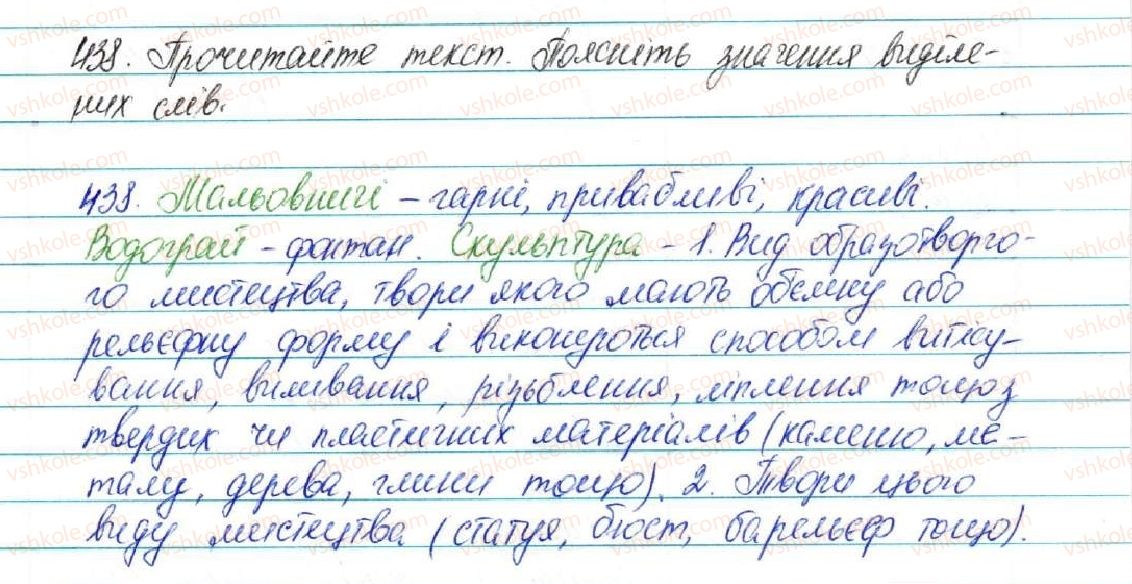 438. Прочитайте текст. Поясніть значення виділе-
них слів.
438. Мальовничі – гарні, привабливі, красиві.
Водограй – фонтан. Скульптура – 1. Вид образотворчо-
го мистецтва, твори якого мають об'ємну або
рельєфну форму і виконуються способом витісу-
вання, виливання, різьблення, ліплення тощо з
твердих чи пластичних матеріалів (каменю, ме-
талу, дерева, глини тощо). 2. Твори цього
виду мистецтва (статуя, бюст, барельєф тощо).